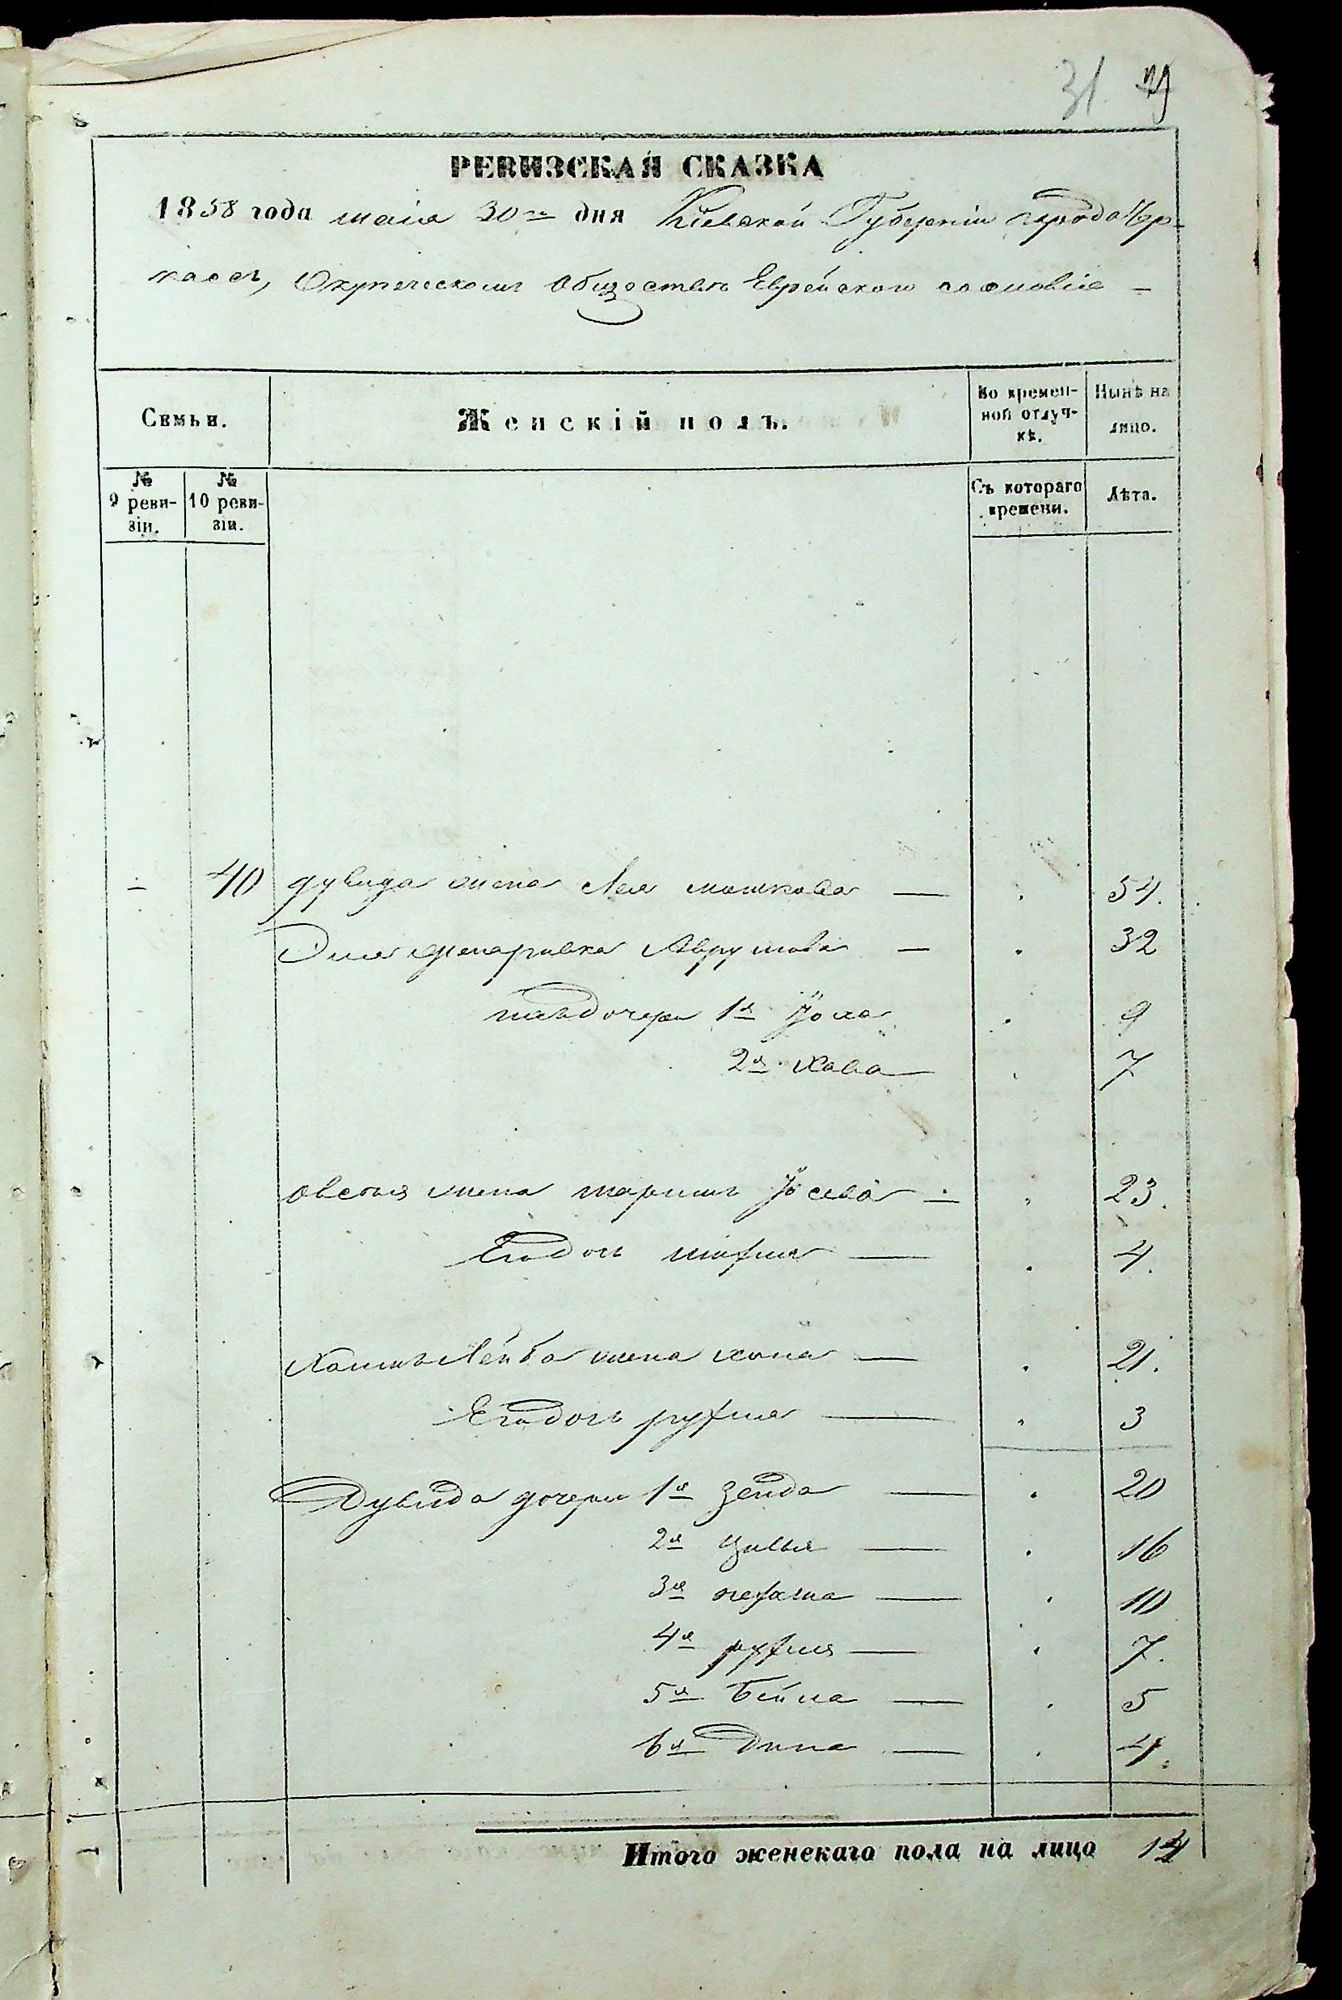 31 29
РЕВИЗСКАЯ СКАЗКА
1858 года маія 30го дня Кіевской Губерніи города Чер-
касъ, О купеческомъ Обществѣ Еврейскаго сословіе —
Семьи.
Женскій полъ.
Во времен-
ной отлуч-
кѣ.
Нынѣ на
лицо.
№
9 реви-
зіи.
№
10 реви-
зіи.
Съ котораго
времени.
Лѣта.
— 40 Дувида жена Лея Мошкова — 54.
Аврумова — 32
дочери 1я 9
2я Хава — 7
Овсея жена Маріамъ Іосева — 23.
Его дочь — 4.
Хаимъ Лейба жена Хана — 21.
Его дочь Рухля — 3
Дувида дочери 1я Зельда — 20
2я Цивья — 16
3я Нехама — 10
4я Рухля — 7.
5я Бейла — 5
6я Дина — 4.
Итого женскаго пола на лицо 14